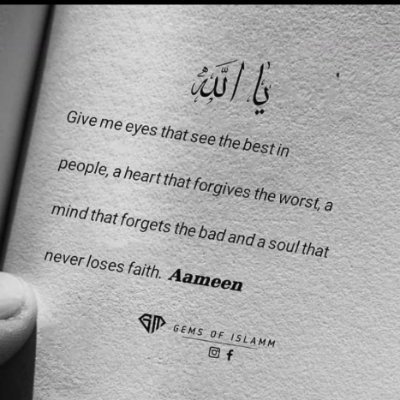 يا الله
Give me eyes that see the best in
people, a heart that forgives the worst, a
mind that forgets the bad and a soul that
never loses faith. Aameen
GEMS OF ISLAMM